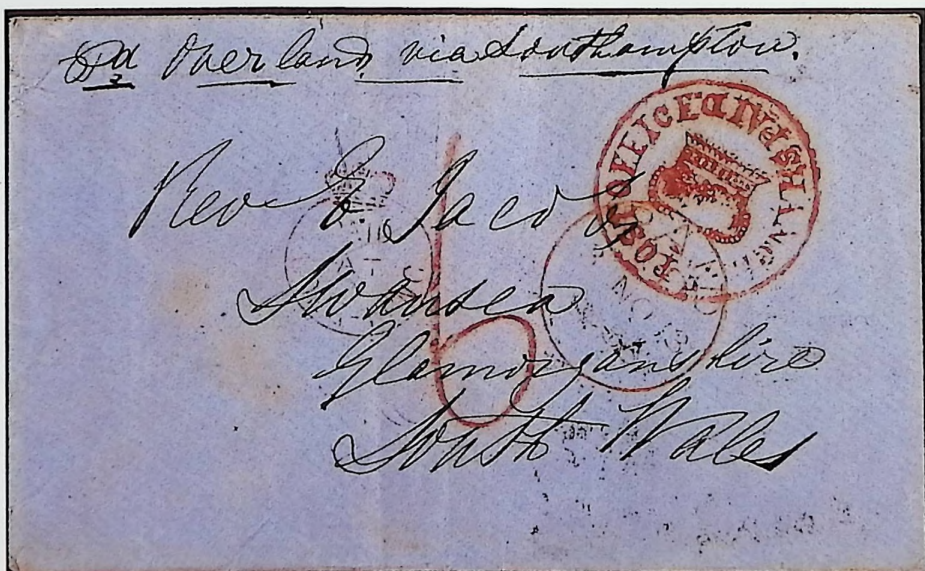 Pd Overland via Southampton.
POST OFFICE
PAID SHANG
Rev E Jacob
Swansea
Glamorganshire
South Wales
6
PAID
NO